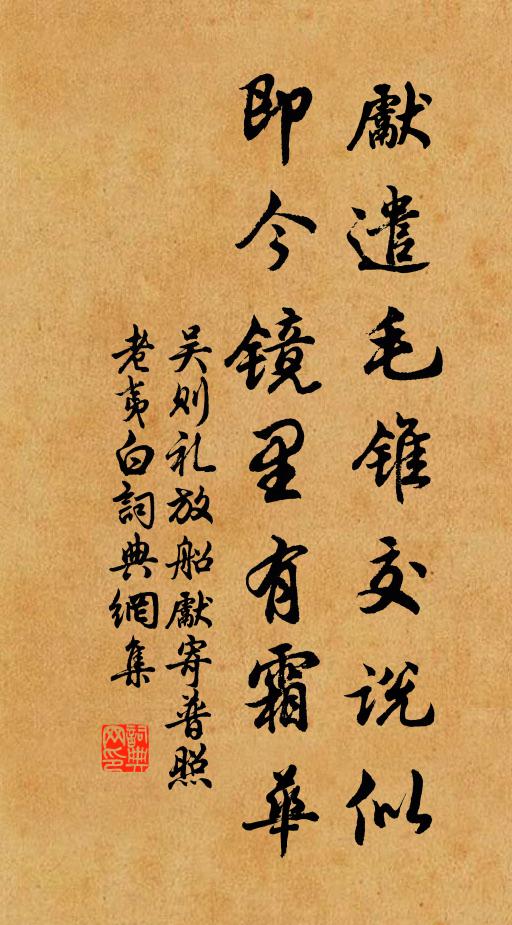 獻遣毛锥交说似
即今镜里有霜華
吴则礼放船獻寄普照
老夷白詞典網集
詞典网印